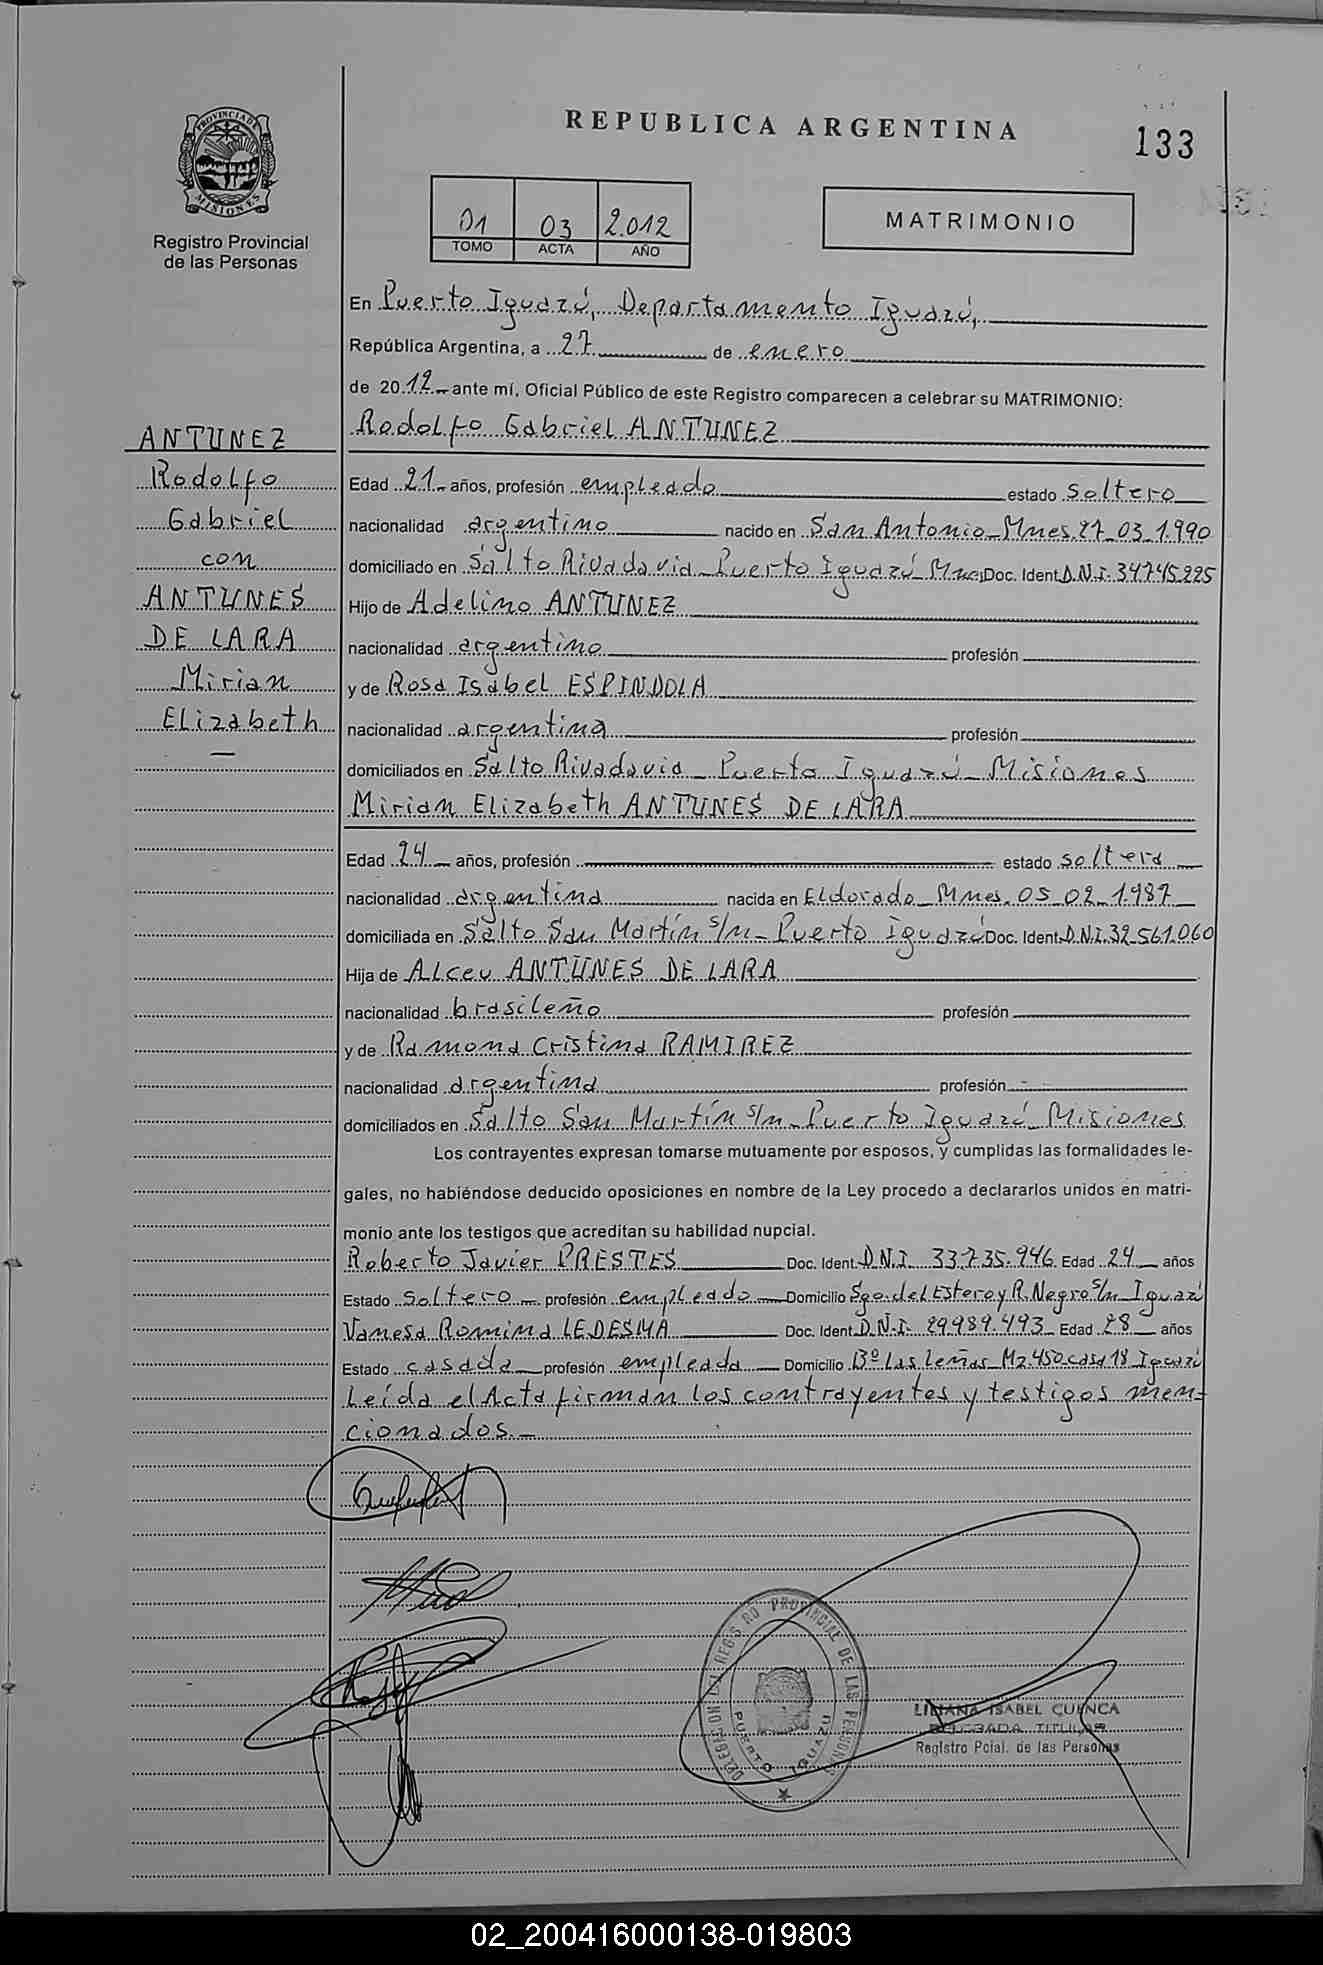 REPUBLICA ARGENTINA
133
PROVINCIA DE MISIONES
Registro Provincial
de las Personas
01 03 2.012
TOMO ACTA AÑO
MATRIMONIO
En Puerto Iguazú, Departamento Iguazú,
República Argentina, a 27 de enero
de 2012 ante mí, Oficial Público de este Registro comparecen a celebrar su MATRIMONIO:
Rodolfo Gabriel ANTUNEZ
ANTUNEZ
Rodolfo
Gabriel
con
ANTUNES
DE LARA
Mirian
Elizabeth
—
Edad 21 años, profesión empleado estado soltero
nacionalidad argentino nacido en San Antonio_Mnes.27_03_1.990
domiciliado en Salto Rivadavia_Puerto Iguazú_Mnes Doc. Ident. D.N.I. 34.745.225
Hijo de Adelino ANTUNEZ
nacionalidad argentino profesión
y de Rosa Isabel ESPINDOLA
nacionalidad argentina profesión
domiciliados en Salto Rivadavia_Puerto Iguazú_Misiones
Mirian Elizabeth ANTUNES DE LARA
Edad 24 años, profesión estado soltera
nacionalidad argentina nacida en Eldorado_Mnes. 05_02_1.987
domiciliada en Salto San Martín s/n_Puerto Iguazú Doc. Ident. D.N.I. 32.561.060
Hija de Alceu ANTUNES DE LARA
nacionalidad brasileño profesión
y de Ramona Cristina RAMIREZ
nacionalidad argentina profesión
domiciliados en Salto San Martín s/n_Puerto Iguazú_Misiones
Los contrayentes expresan tomarse mutuamente por esposos, y cumplidas las formalidades le-
gales, no habiéndose deducido oposiciones en nombre de la Ley procedo a declararlos unidos en matri-
monio ante los testigos que acreditan su habilidad nupcial.
Roberto Javier PRESTES Doc. Ident. D.N.I. 33.735.946 Edad 24 años
Estado soltero profesión empleado Domicilio Sgo.del Estero y R.Negro s/n_Iguazú
Vanesa Romina LEDESMA Doc. Ident. D.N.I. 29.989.493 Edad 28 años
Estado casada profesión empleada Domicilio Bº Las Leñas_Mz.450.casa 18_Iguazú
Leída el Acta firman los contrayentes y testigos men-
cionados.
DELEGACION DEL REGISTRO PROVINCIAL DE LAS PERSONAS
PUERTO IGUAZU
LILIANA ISABEL CUENCA
DELEGADA TITULAR
Registro Pcial. de las Personas
02_200416000138-019803